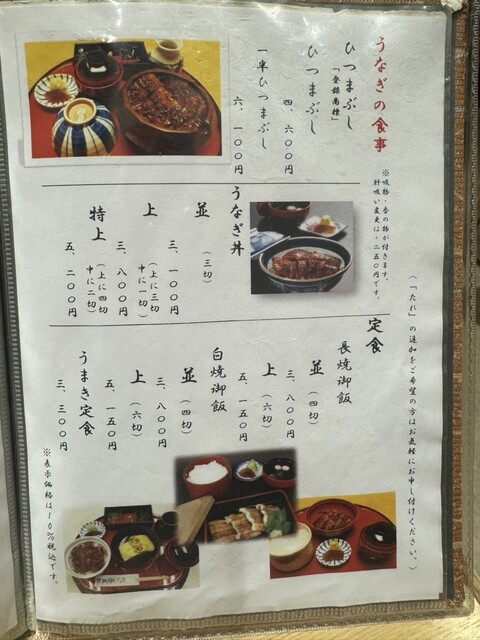 うなぎの食事
※吸物・香の物が付きます。
肝吸い変更は、二五〇円です。
ひつまぶし
「登録商標」
ひつまぶし
四、六〇〇円
一半ひつまぶし
六、一〇〇円
うなぎ丼
並
(三切)
三、一〇〇円
上
(上に三切
中に一切)
三、八〇〇円
特上
(上に四切
中に二切)
五、二〇〇円
(「たれ」の追加をご希望の方はお気軽にお申し付けください。)
定食
長焼御飯
並
(四切)
三、八〇〇円
上
(六切)
五、一五〇円
白焼御飯
並
(四切)
三、八〇〇円
上
(六切)
五、一五〇円
うまき定食
三、三〇〇円
※表示価格は10%税込です。